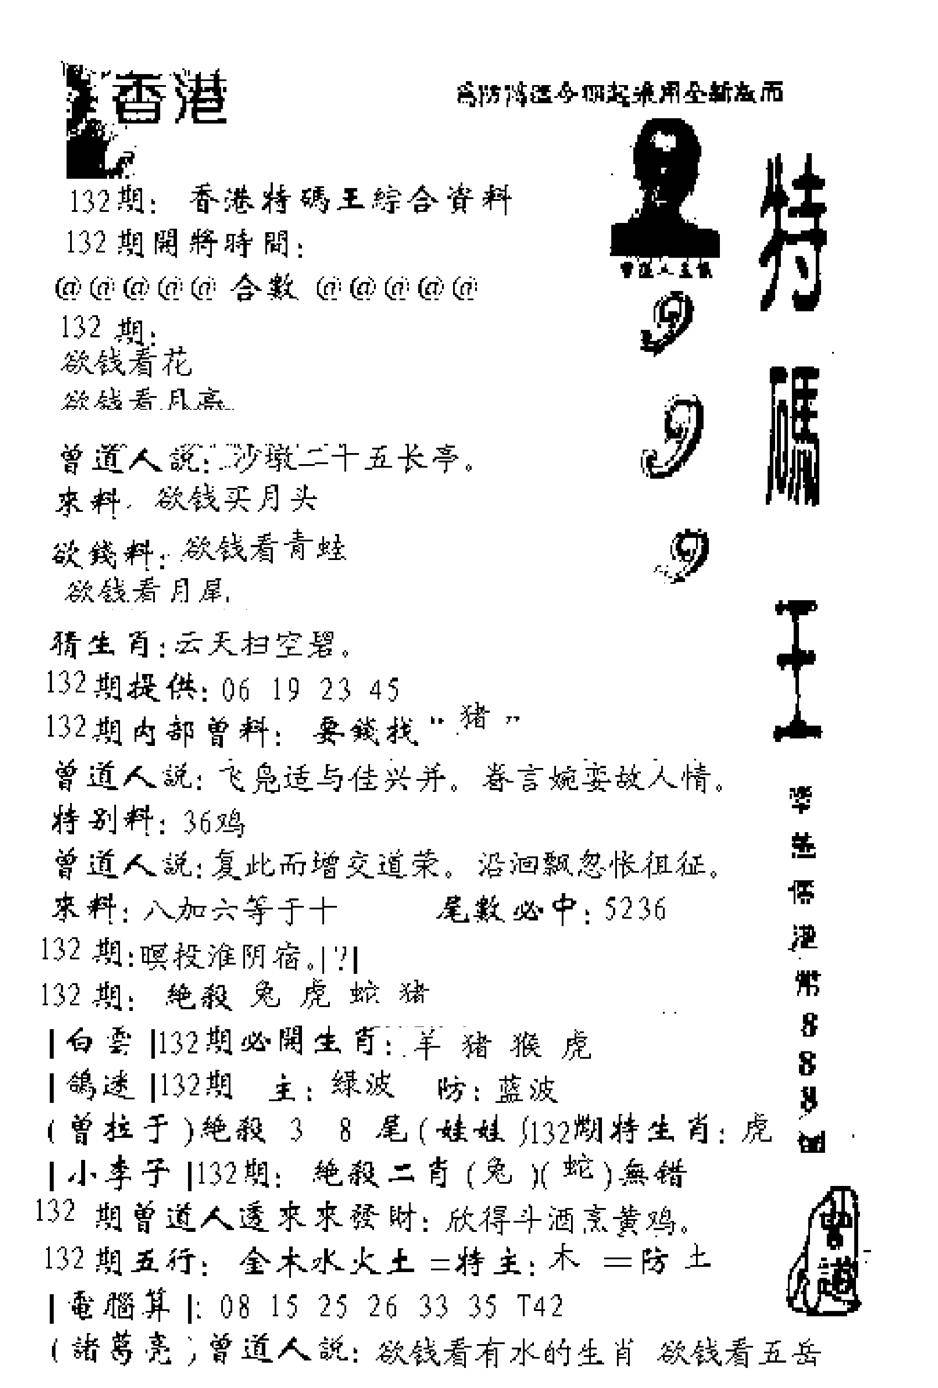 香港
為防
132期: 香港特碼王綜合資料
132期開將時間:
@@@@@ 合數 @@@@@
132 期:
欲钱看花
欲钱看月亮
曾道人説: 沙墩二十五长亭。
來料: 欲钱买月头
欲錢料: 欲钱看青蛙
欲钱看月尾
猜生肖: 云天扫空碧。
132期提供: 06 19 23 45
132期内部曾料: 要錢找“猪”
曾道人説: 飞凫适与佳兴并。眷言婉娈故人情。
特别料: 36鸡
曾道人説: 复此而增交道荣。沿洄飘忽怅徂征。
來料: 八加六等于十 尾數必中: 5236
132 期:暝投淮阴宿。|?|
132 期: 絶殺 兔 虎 蛇 猪
|白雲|132期必開生肖: 羊 猪 猴 虎
|鴿迷|132期 主: 緑波 防: 蓝波
(曾拉于)絶殺 3 8 尾(娃娃)132期特生肖: 虎
|小李子|132期: 絶殺二肖(兔)(蛇)無错
132 期曾道人透來來發財: 欣得斗酒烹黄鸡。
132期五行: 金木水火土=特主: 木 =防 土
|電腦算|: 08 15 25 26 33 35 T42
(諸葛亮)曾道人説: 欲钱看有水的生肖 欲钱看五岳
曾道人主
9
9
9
特碼王
港幣888
曾道